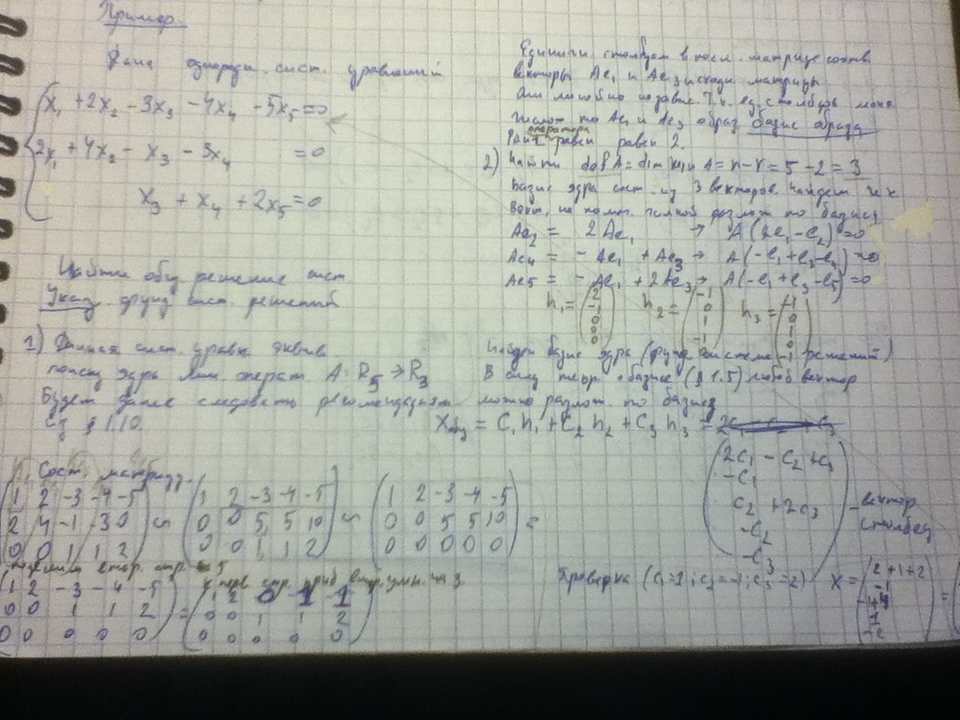 Пример.
Дана однородн. сист. уравнений
x₁ + 2x₂ - 3x₃ - 4x₄ - 5x₅ = 0
2x₁ + 4x₂ - x₃ - 3x₄ = 0
x₃ + x₄ + 2x₅ = 0
Найти общ. решение сист
Указ. фунд. сист. решений
1) Данная сист. уравн. эквив
поиску ядра лин. операт. A: R₅ → R₃
Будем далее следовать рекомендациям
из § 1.10.
Сост. матрицу.
(1 2 -3 -4 -5) ∽ (1 2 -3 -4 -5) ∽ (1 2 -3 -4 -5) =
(2 4 -1 -3 0) (0 0 5 5 10) (0 0 5 5 10)
(0 0 1 1 2) (0 0 1 1 2) (0 0 0 0 0)
втор. стр. на 5
к перв. стр. приб втор. умн. на 3
(1 2 -3 -4 -5) = (1 2 0 -1 1)
(0 0 1 1 2) (0 0 1 1 2)
(0 0 0 0 0) (0 0 0 0 0)
Единичн. столбцам в посл. матрице соотв
векторы Ae₁ и Ae₃ исходн матрицы
Они линейно независ. Т.к. ед. столбцов
то Ae₁ и Ae₃ образ базис образа
Ранг оператора равен 2.
2) Найти def A = dim ker A = n - r = 5 - 2 = 3
Базис ядра сост. из 3 векторов. Найдем их с
разлож по базису
Ae₂ = 2Ae₁ → A(2e₁ - e₂) = 0
Ae₄ = -Ae₁ + Ae₃ → A(-e₁ + e₃ - e₄) = 0
Ae₅ = -Ae₁ + 2Ae₃ → A(-e₁ + e₃ - e₅) = 0
h₁ = (2 -1 0 0 0) h₂ = (-1 0 1 -1 0) h₃ = (-1 0 1 0 -1)
Найден базис ядра (фунд система решений)
В силу теор. о базисе (§ 1.5) любой вектор
можно разлож. по базису
= C₁h₁ + C₂h₂ + C₃h₃ =
(2C₁ - C₂ + C₃
-C₁
C₂ + 2C₃ - вектор
-C₂ столбец
-C₃)
Проверка (C₁=1; C₂=-1; C₃=2) X = (2+1+2
-1